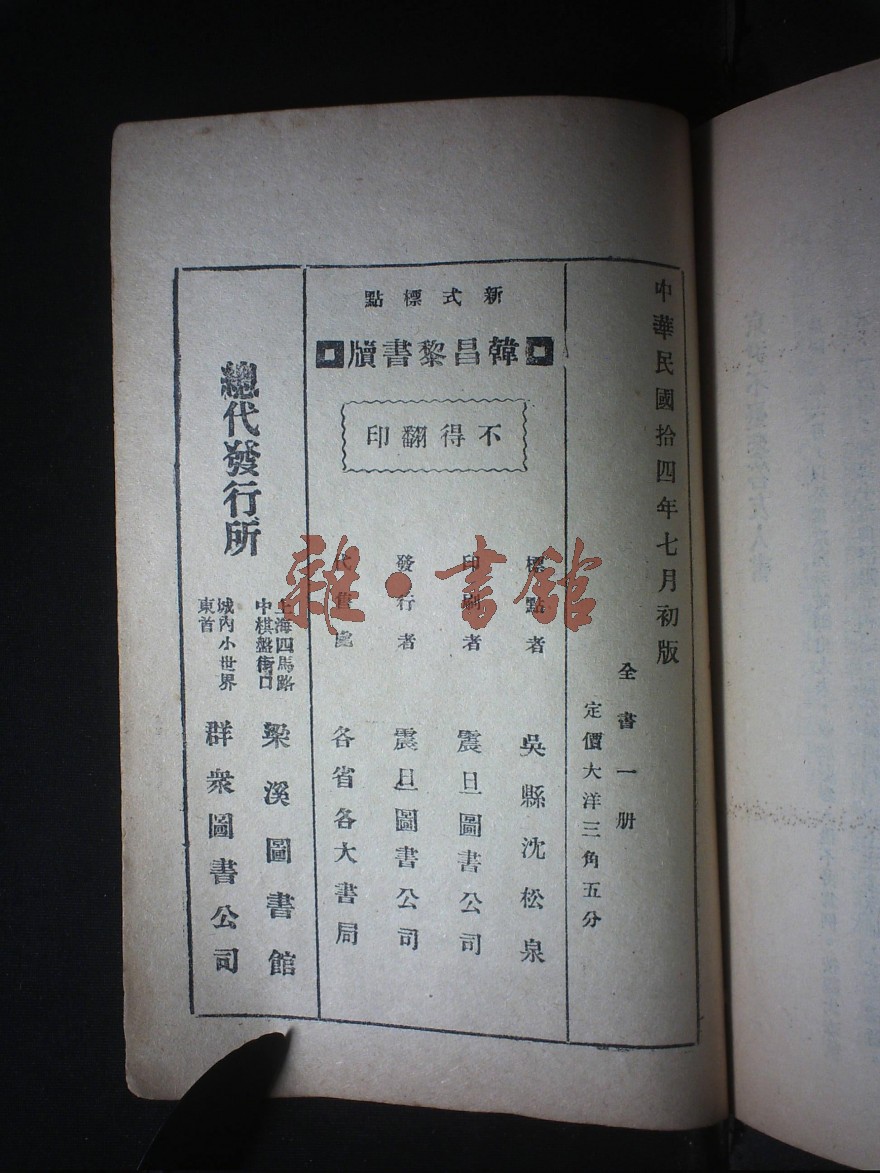 中華民國拾四年七月初版
全書一册
定價大洋三角五分
新式標點
韓昌黎書牘
不得翻印
標點者 吳縣沈松泉
印刷者 震旦圖書公司
發行者 震旦圖書公司
代售處 各省各大書局
總代發行所
上海四馬路
中棋盤街口
梁溪圖書館
城內小世界
東首
群衆圖書公司
雜·書館